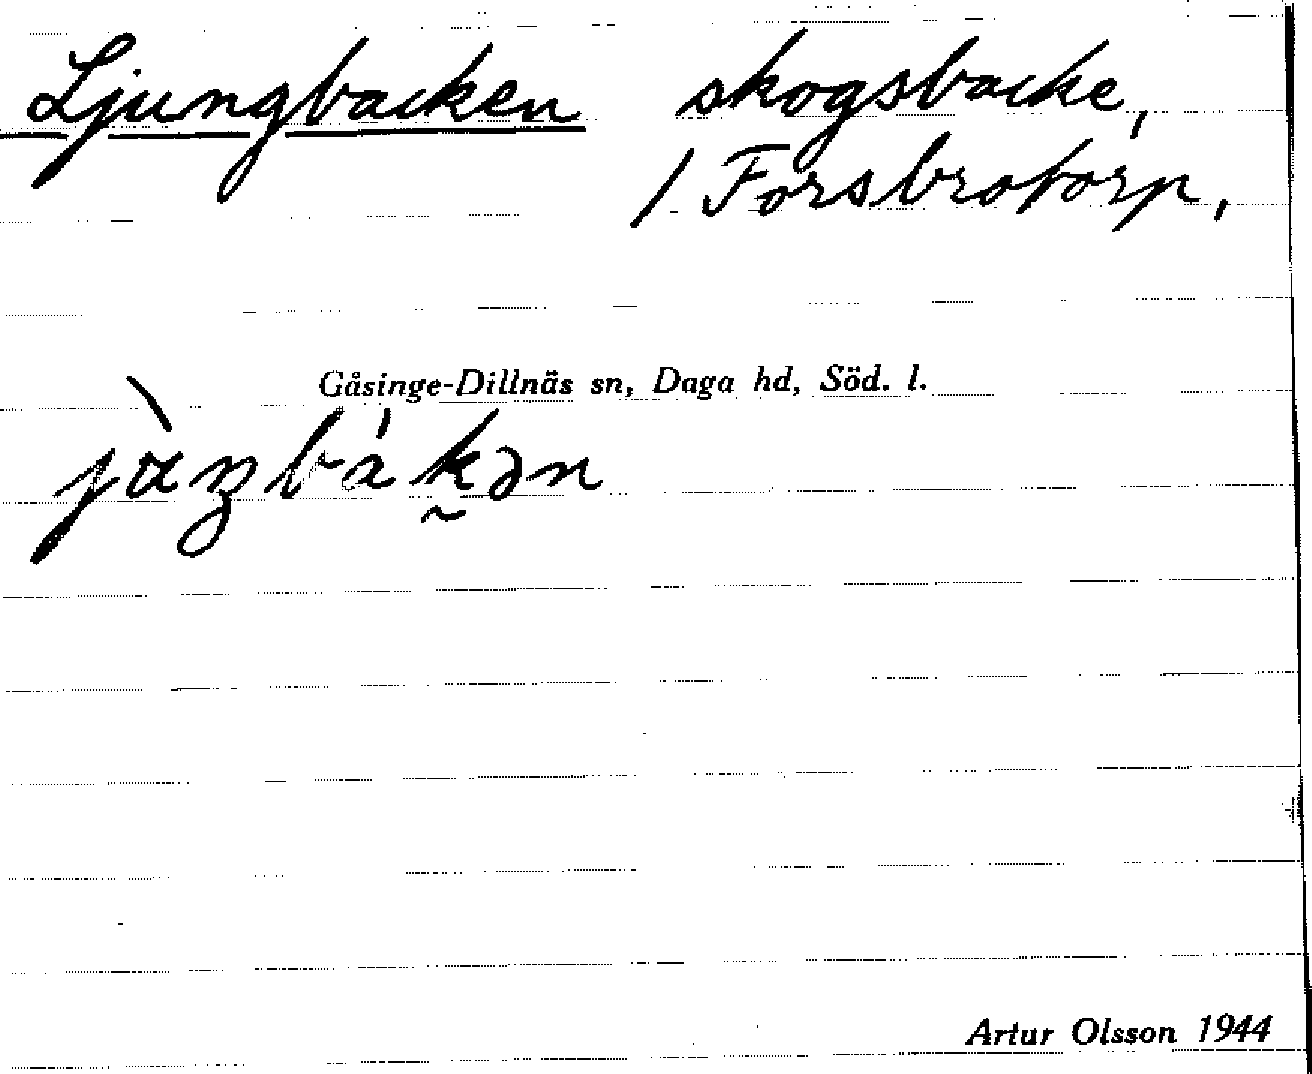 Ljungbacken skogsbacke,
/ Forsbrotorp,
Gåsinge-Dillnäs sn, Daga hd, Söd. l.
Artur Olsson 1944